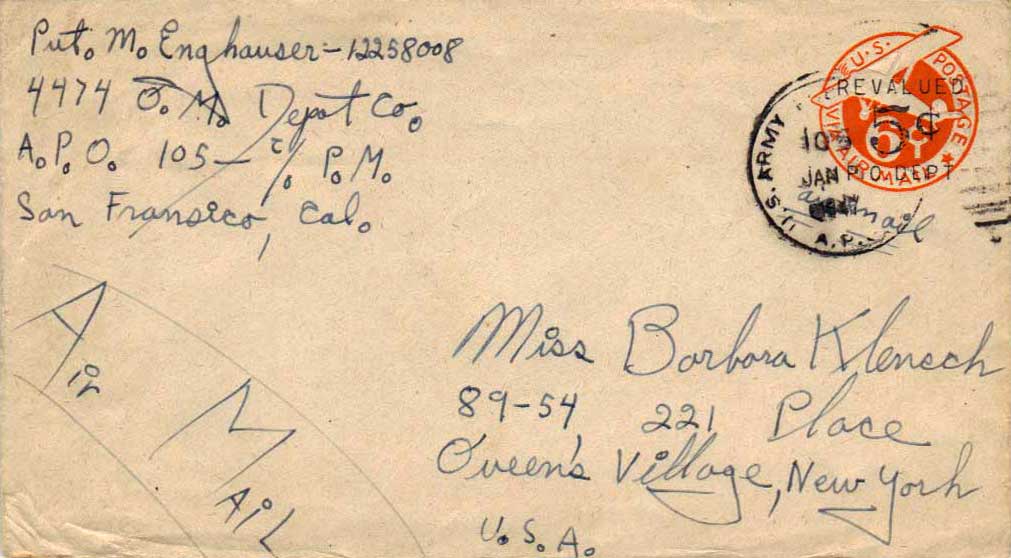 Pvt. M. Enghauser - 12258008
4474 Q.M. Depot Co.
A.P.O. 105 - c/o P.M.
San Fransico, Cal.
U.S. POSTAGE
REVALUED
5¢
6¢
P.O. DEPT
VIA AIR MAIL
U.S. ARMY
105
JAN
A.P.
air mail
Air
Mail
Miss Barbara Klensch
89-54 221 Place
Queen's Village, New York
U.S.A.